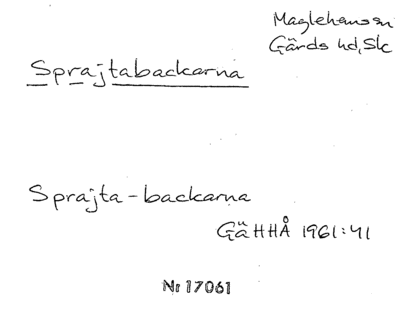 Maglehems sn
Gärds hd, Sk
Sprajtabackarna
Sprajta-backarna
GäHHÅ 1961:41
Nr 17061